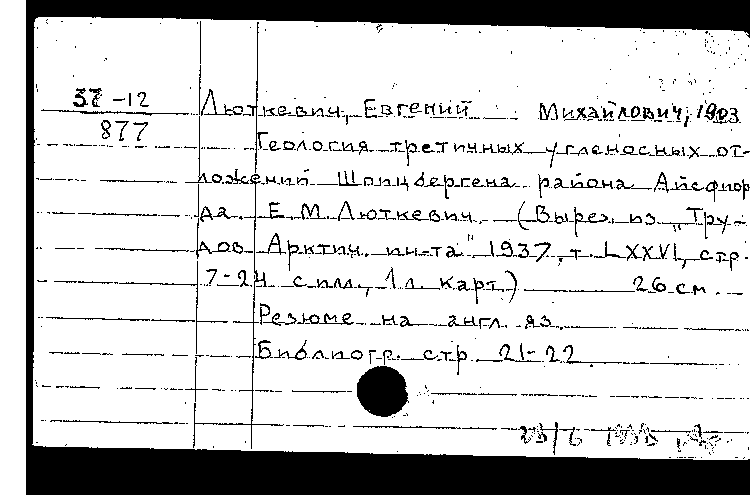 37-12
877
Люткевич, Евгений Михайлович, 1903
Геология третичных угленосных от-
ложений Шпицбергена района Айсфиор
да. Е.М. Люткевич. (Вырез. из „Тру-
дов Арктич. ин-та" 1937, т. LXXVI, стр.
7-24 с илл., 1 л. карт.) 26 см.
Резюме на англ. яз.
Библиогр. стр. 21-22.
23/6